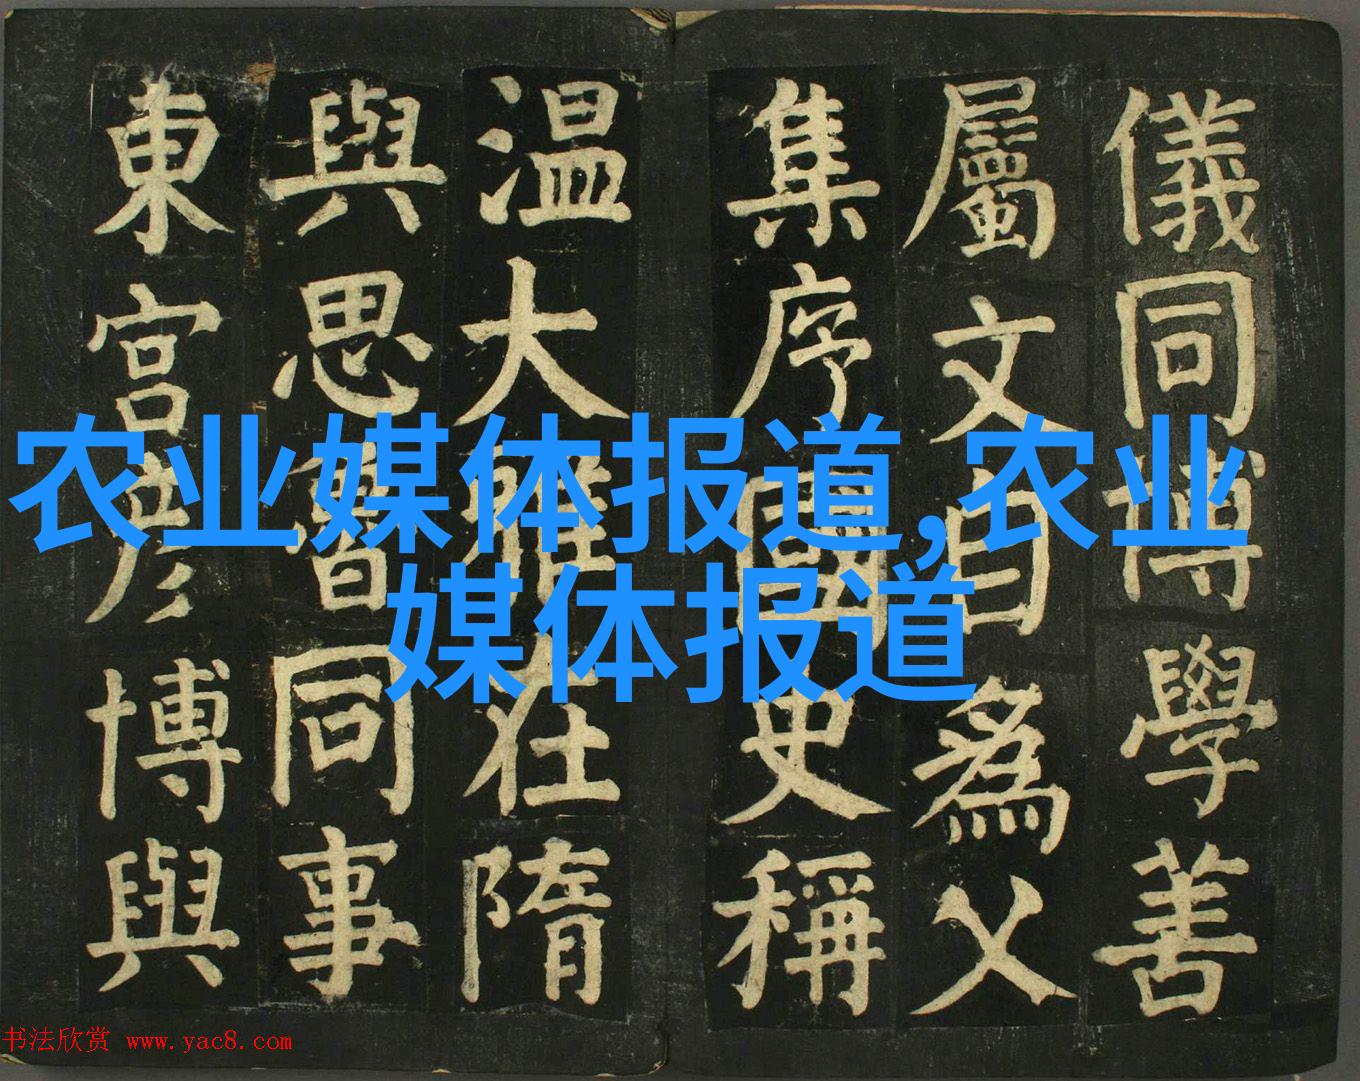 儀同博學善
屬文自為父
集序國史稱
温大雅在隋
與思魯同事
東宮彥博與
农业媒体报道,农业
媒体报道
书法欣赏 www.yac8.com